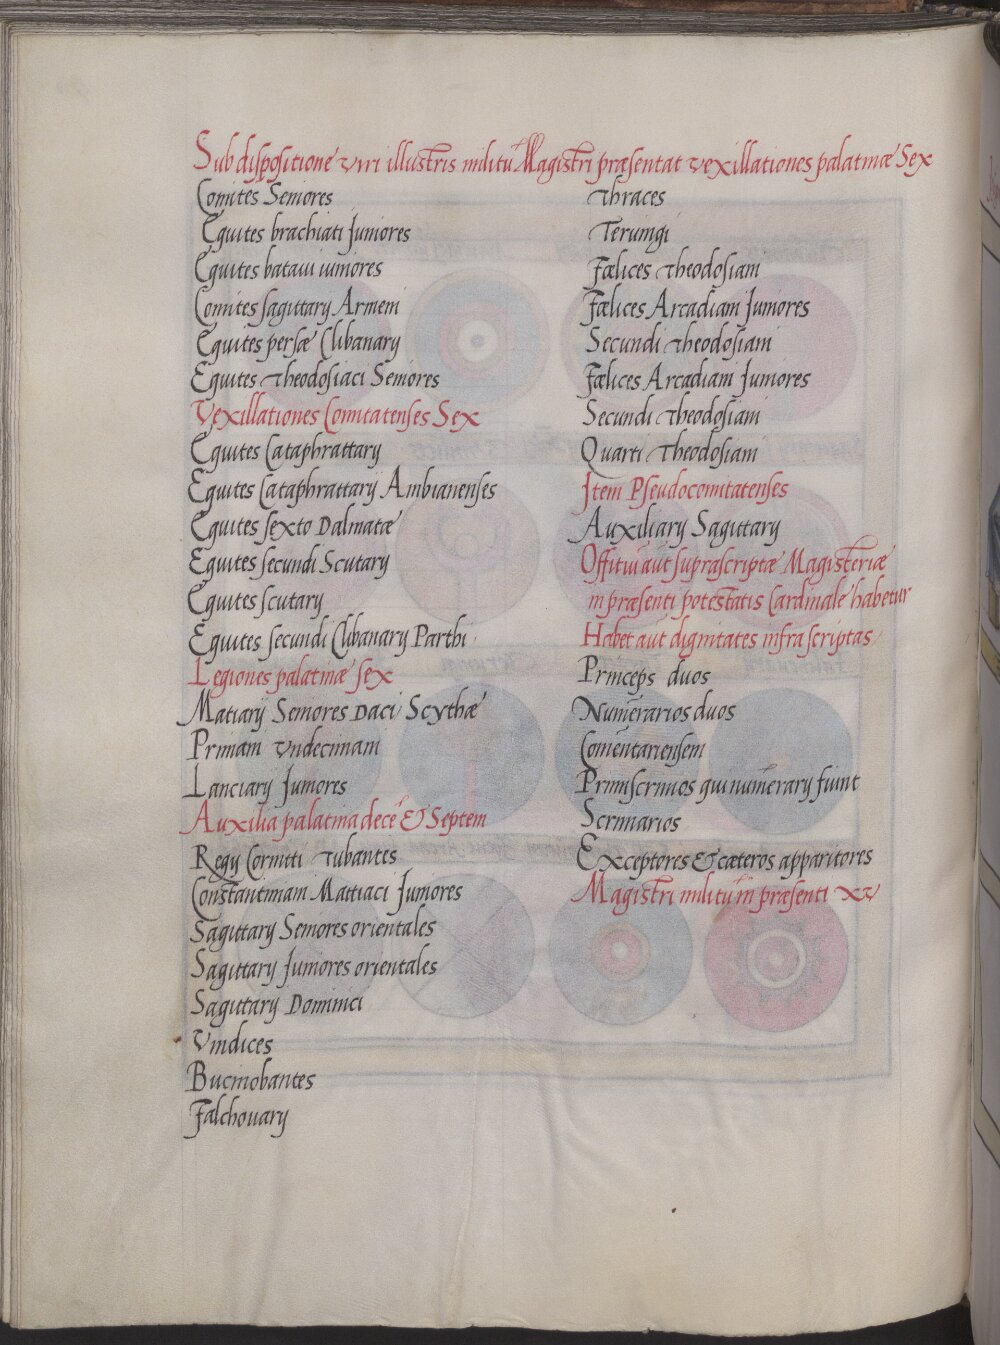 Sub dispositione viri illustris militū Magistri præsentat vexillationes palatinæ Sex
Comites Seniores
Equites brachiati Juniores
Equites bataui iuniores
Comites sagittarÿ Armeni
Equites persæ ClibanarÿEquites Theodosiaci Seniores
Vexillationes Comitatenses Sex
Equites Cataphrattarÿ
Equites Cataphrattarÿ Ambianenses
Equites sexto Dalmatæ
Equites secundi Scutarÿ
Equites scutarÿ
Equites secundi Clibanarÿ Parthi
Legiones palatinæ sex
Matiarÿ Seniores Daci Scythæ
Primani Vndecimani
Lanciarÿ Juniores
Auxilia palatina decē & Septem
Regÿ Cornuti Tubantes
Constantiniani Mattiaci Juniores
Sagittarÿ Seniores orientales
Sagittarÿ Juniores orientales
Sagittarÿ Dominici
Vindices
Bucinobantes
Falchouarÿ
Thraces
Teruingi
Fælices Theodosiani
Fælices Arcadiani Juniores
Secundi Theodosiani
Fælices Arcadiani Juniores
Secundi Theodosiani
Quarti Theodosiani
Item Pseudocomitatenses
Auxiliarÿ Sagittarÿ
Offitiū aūt suprascriptæ Magisteriæ
in præsenti potestatis Cardinale habetur
Habet aūt dignitates infra scriptas
Princeps duos
Numērarios duos
Comēntariensem
Primiscrinios qui numērarÿ fiunt
Scriniarios
Exceptores & cæteros apparitores
Magistri militū in præsenti xv